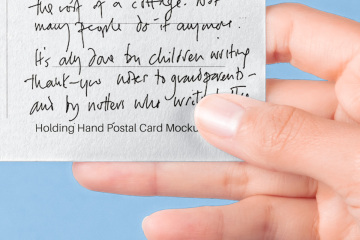 the cost of a cottage. Not
many people do it anymore.
It's only done by children writing
thank-you notes to grandparents -
and by nutters who write letters
Holding Hand Postal Card Mocku